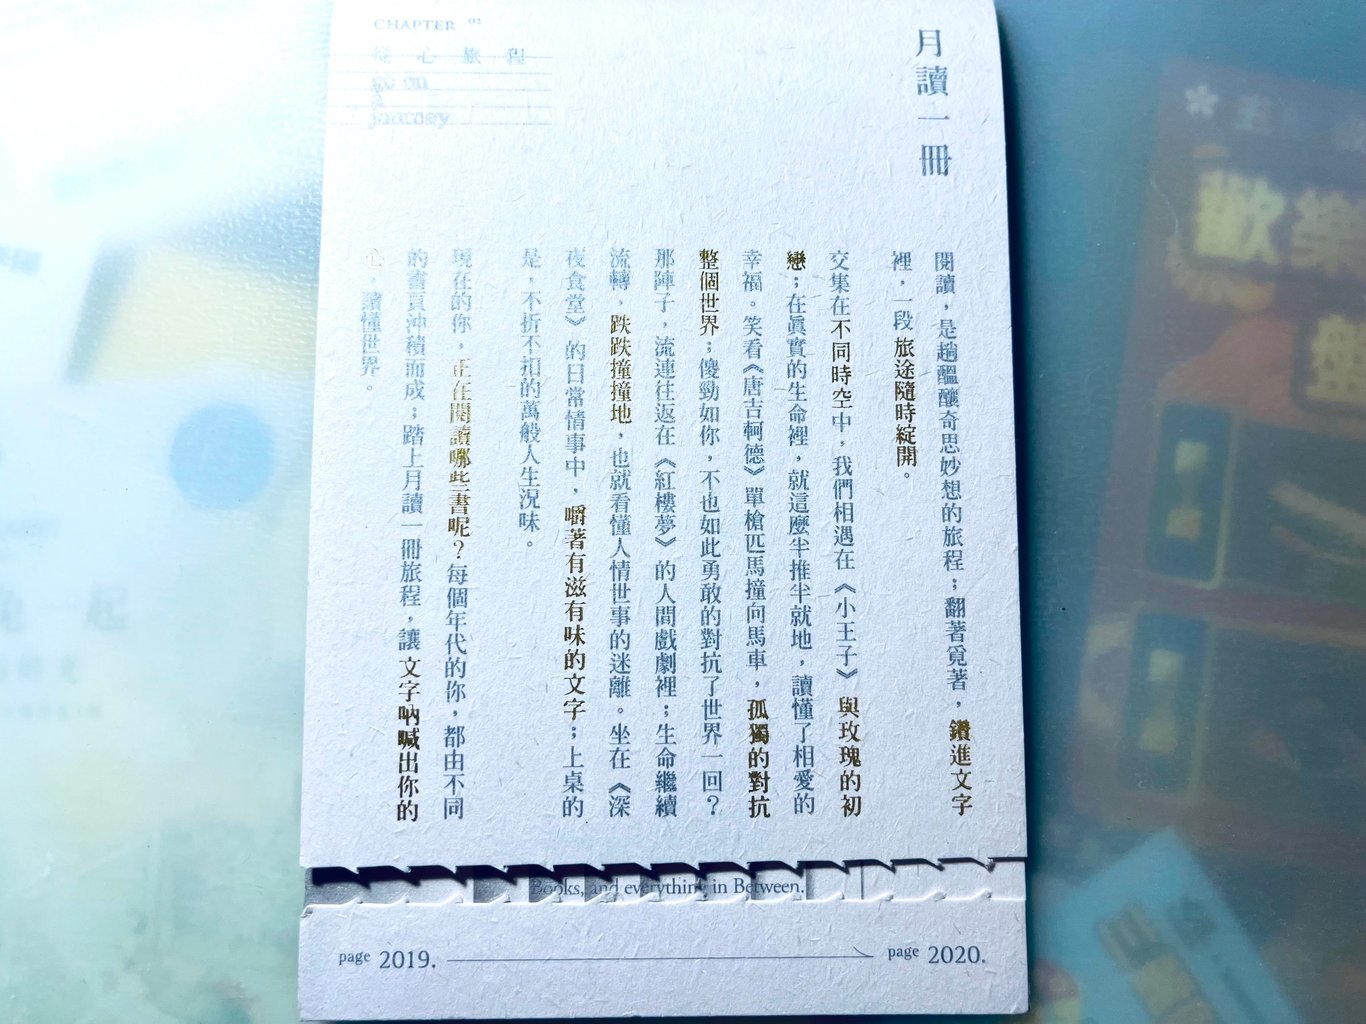 CHAPTER 01
從心旅程
go on
a
journey
月讀一冊
閱讀，是趟醞釀奇思妙想的旅程；翻著覓著，鑽進文字
裡，一段旅途隨時綻開。
交集在不同時空中，我們相遇在《小王子》與玫瑰的初
戀；在真實的生命裡，就這麼半推半就地，讀懂了相愛的
幸福。笑看《唐吉軻德》單槍匹馬撞向馬車，孤獨的對抗
整個世界；傻勁如你，不也如此勇敢的對抗了世界一回？
那陣子，流連往返在《紅樓夢》的人間戲劇裡；生命繼續
流轉，跌跌撞撞地，也就看懂人情世事的迷離。坐在《深
夜食堂》的日常情事中，嚼著有滋有味的文字；上桌的
是，不折不扣的萬般人生況味。
現在的你，正在閱讀哪些書呢？每個年代的你，都由不同
的書頁沖積而成；踏上月讀一冊旅程，讓文字吶喊出你的
心，讀懂世界。
Books, and everything in Between.
page 2019.
page 2020.
歡樂